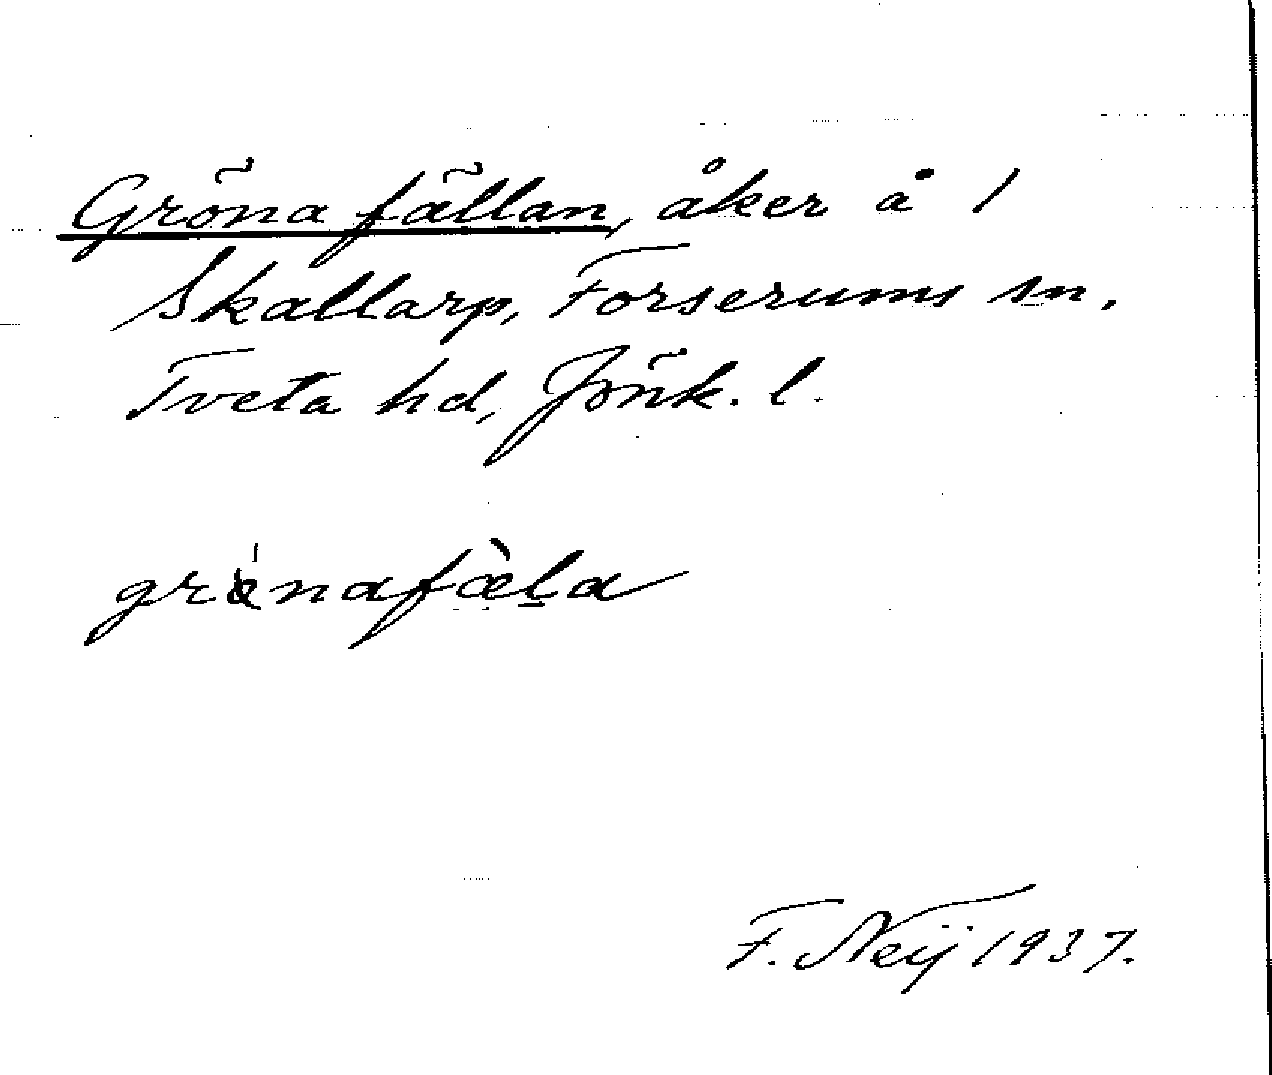 Gröna fällan, åker å 1
Skallarp, Forserums sn,
Tveta hd, Jönk. l.
grønafæ̀l̠a
F. Neij 1937.